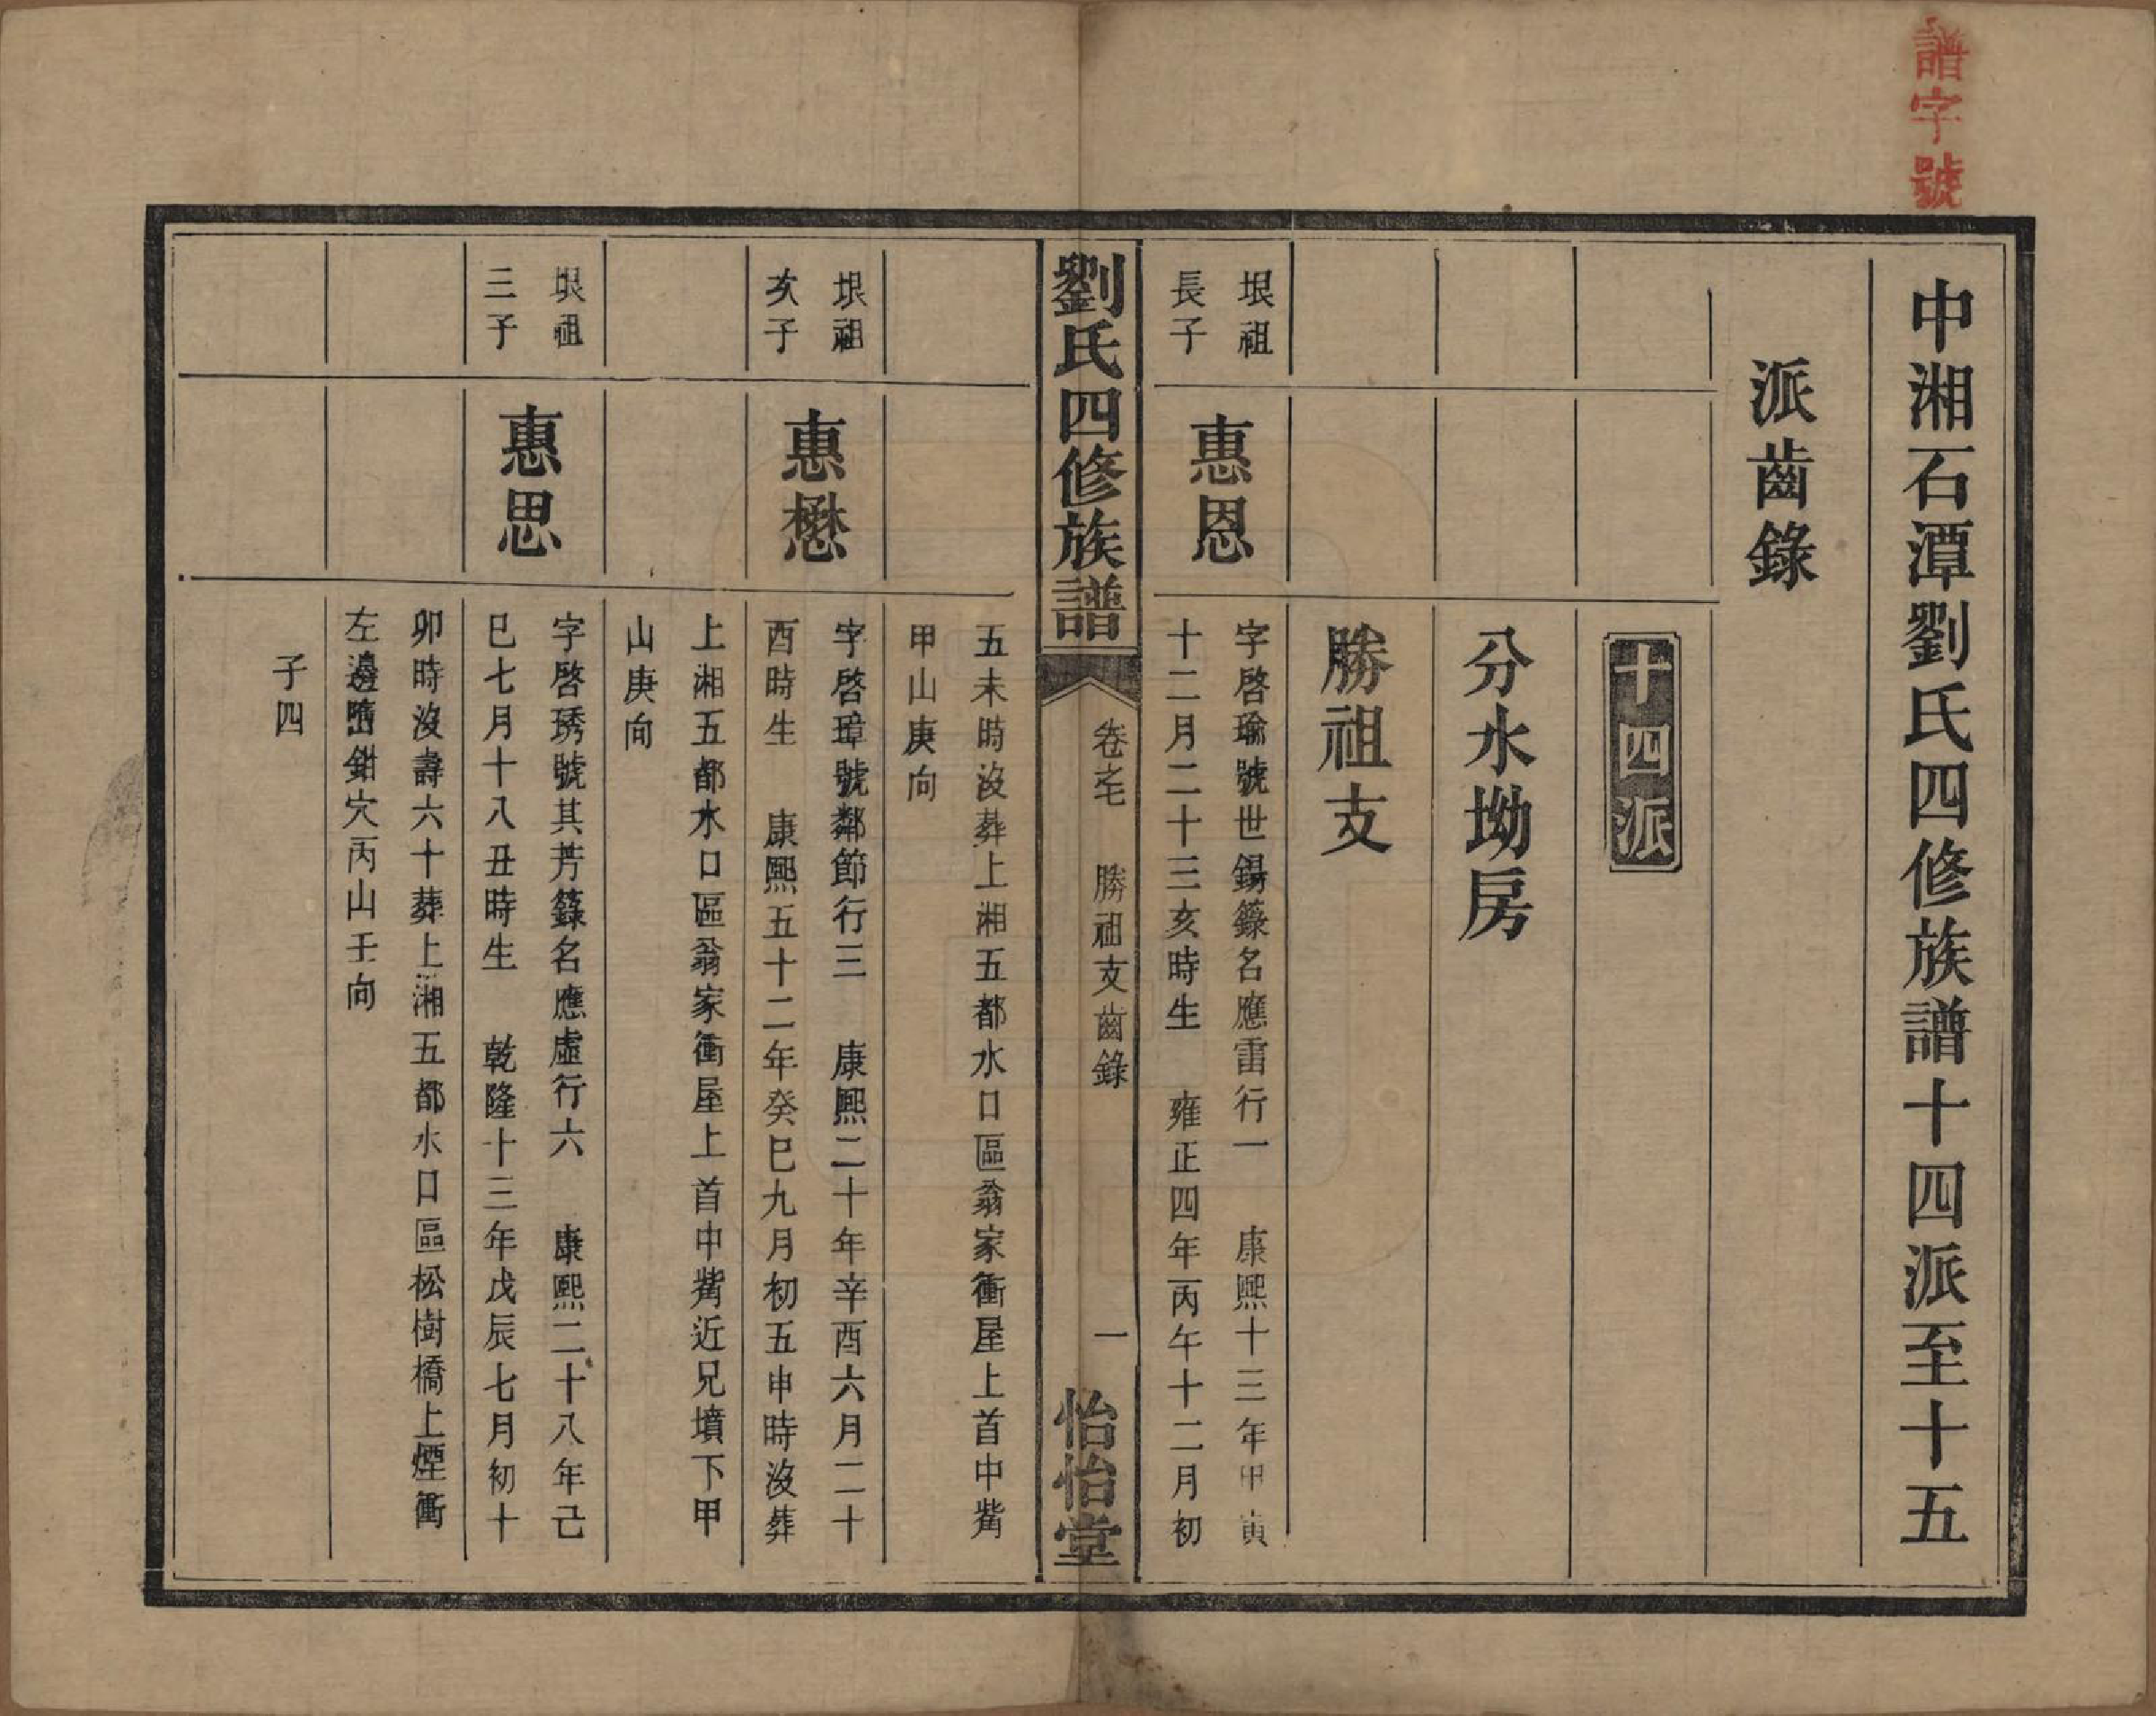 譜字號
中湘石潭劉氏四修族譜十四派至十五
派齒錄
十四派
分水坳房
勝祖支
垠祖
長子
惠恩
字啓瑜號世錫籙名應雷行一 康熙十三年甲寅
十二月二十三亥時生 雍正四年丙午十二月初
劉氏四修族譜
卷之 勝祖支齒錄
一
怡怡堂
五未時沒葬上湘五都水口區翁家衝屋上首中觜
甲山庚向
垠祖
次子
惠懋
字啓璋號鄰節行三 康熙二十年辛酉六月二十
酉時生 康熙五十二年癸巳九月初五申時沒葬
上湘五都水口區翁家衝屋上首中觜近兄墳下甲
山庚向
垠祖
三子
惠思
字啓琇號其芳籙名應虛行六 康熙二十八年己
巳七月十八丑時生 乾隆十三年戊辰七月初十
卯時沒壽六十葬上湘五都水口區松樹橋上煙衝
左邊鉗穴丙山壬向
子四